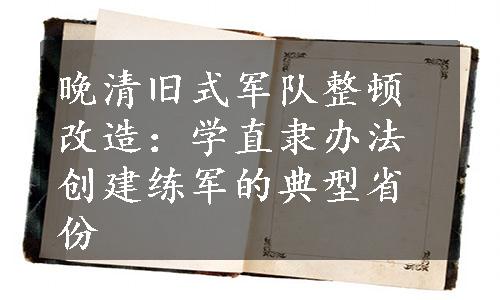 晚清旧式军队整顿
改造：学直隶办法
创建练军的典型省
份